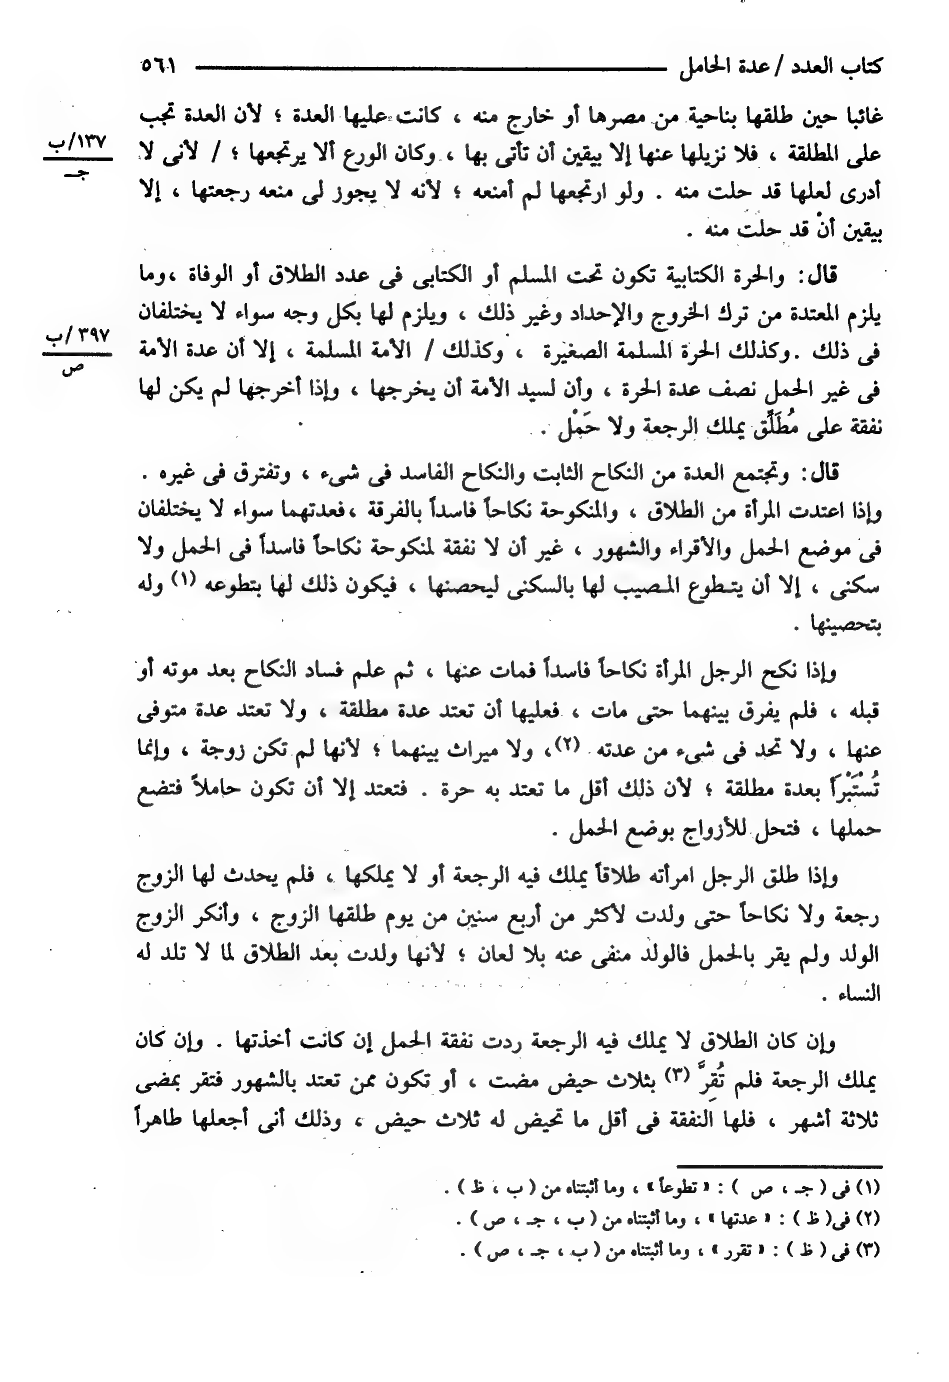 كتاب العدد / عدة الحامل ٥٦١
غائبا حين طلقها بناحية من مصرها أو خارج منه ، كانت عليها العدة ؛ لأن العدة تجب
١٣٧/ب
جـ
على المطلقة ، فلا نزيلها عنها إلا بيقين أن تأتى بها ، وكان الورع ألا يرتجعها ؛ / لأنى لا
أدرى لعلها قد حلت منه . ولو ارتجعها لم أمنعه ؛ لأنه لا يجوز لى منعه رجعتها ، إلا
بيقين أنْ قد حلت منه .
قال : والحرة الكتابية تكون تحت المسلم أو الكتابى فى عدد الطلاق أو الوفاة ،وما
يلزم المعتدة من ترك الخروج والإحداد وغير ذلك ، ويلزم لها بكل وجه سواء لا يختلفان
٣٩٧/ب
ص
فى ذلك .وكذلك الحرة المسلمة الصغيرة ، وكذلك / الأمة المسلمة ، إلا أن عدة الأمة
فى غير الحمل نصف عدة الحرة ، وأن لسيد الأمة أن يخرجها ، وإذا أخرجها لم يكن لها
نفقة على مُطَلِّق يملك الرجعة ولا حَمْل .
قال : وتجتمع العدة من النكاح الثابت والنكاح الفاسد فى شىء ، وتفترق فى غيره .
وإذا اعتدت المرأة من الطلاق ، والمنكوحة نكاحاً فاسداً بالفرقة ،فعدتهما سواء لا يختلفان
فى موضع الحمل والأقراء والشهور ، غير أن لا نفقة لمنكوحة نكاحاً فاسداً فى الحمل ولا
سكنى ، إلا أن يتطوع المصيب لها بالسكنى ليحصنها ، فيكون ذلك لها بتطوعه (١) وله
بتحصينها .
وإذا نكح الرجل المرأة نكاحاً فاسداً فمات عنها ، ثم علم فساد النكاح بعد موته أو
قبله ، فلم يفرق بينهما حتى مات ، فعليها أن تعتد عدة مطلقة ، ولا تعتد عدة متوفى
عنها ، ولا تحد فى شىء من عدته (٢)، ولا ميراث بينهما ؛ لأنها لم تكن زوجة ، وإنما
تُسْتَبْرَأ بعدة مطلقة ؛ لأن ذلك أقل ما تعتد به حرة . فتعتد إلا أن تكون حاملاً فتضع
حملها ، فتحل للأزواج بوضع الحمل .
وإذا طلق الرجل امرأته طلاقاً يملك فيه الرجعة أو لا يملكها ، فلم يحدث لها الزوج
رجعة ولا نكاحاً حتى ولدت لأكثر من أربع سنين من يوم طلقها الزوج ، وأنكر الزوج
الولد ولم يقر بالحمل فالولد منفى عنه بلا لعان ؛ لأنها ولدت بعد الطلاق لما لا تلد له
النساء .
وإن كان الطلاق لا يملك فيه الرجعة ردت نفقة الحمل إن كانت أخذتها . وإن كان
يملك الرجعة فلم تُقِرَّ (٣) بثلاث حيض مضت ، أو تكون ممن تعتد بالشهور فتقر بمضى
ثلاثة أشهر ، فلها النفقة فى أقل ما تحيض له ثلاث حيض ، وذلك أنى أجعلها طاهراً
(١) فى ( جـ ، ص ) : « تطوعاً » ، وما أثبتناه من ( ب ، ظ ) .
(٢) فى( ظ ) : « عدتها » ، وما أثبتناه من ( ب ، جـ ، ص ) .
(٣) فى ( ظ ) : « تقرر » ، وما أثبتناه من ( ب ، جـ ، ص ) .